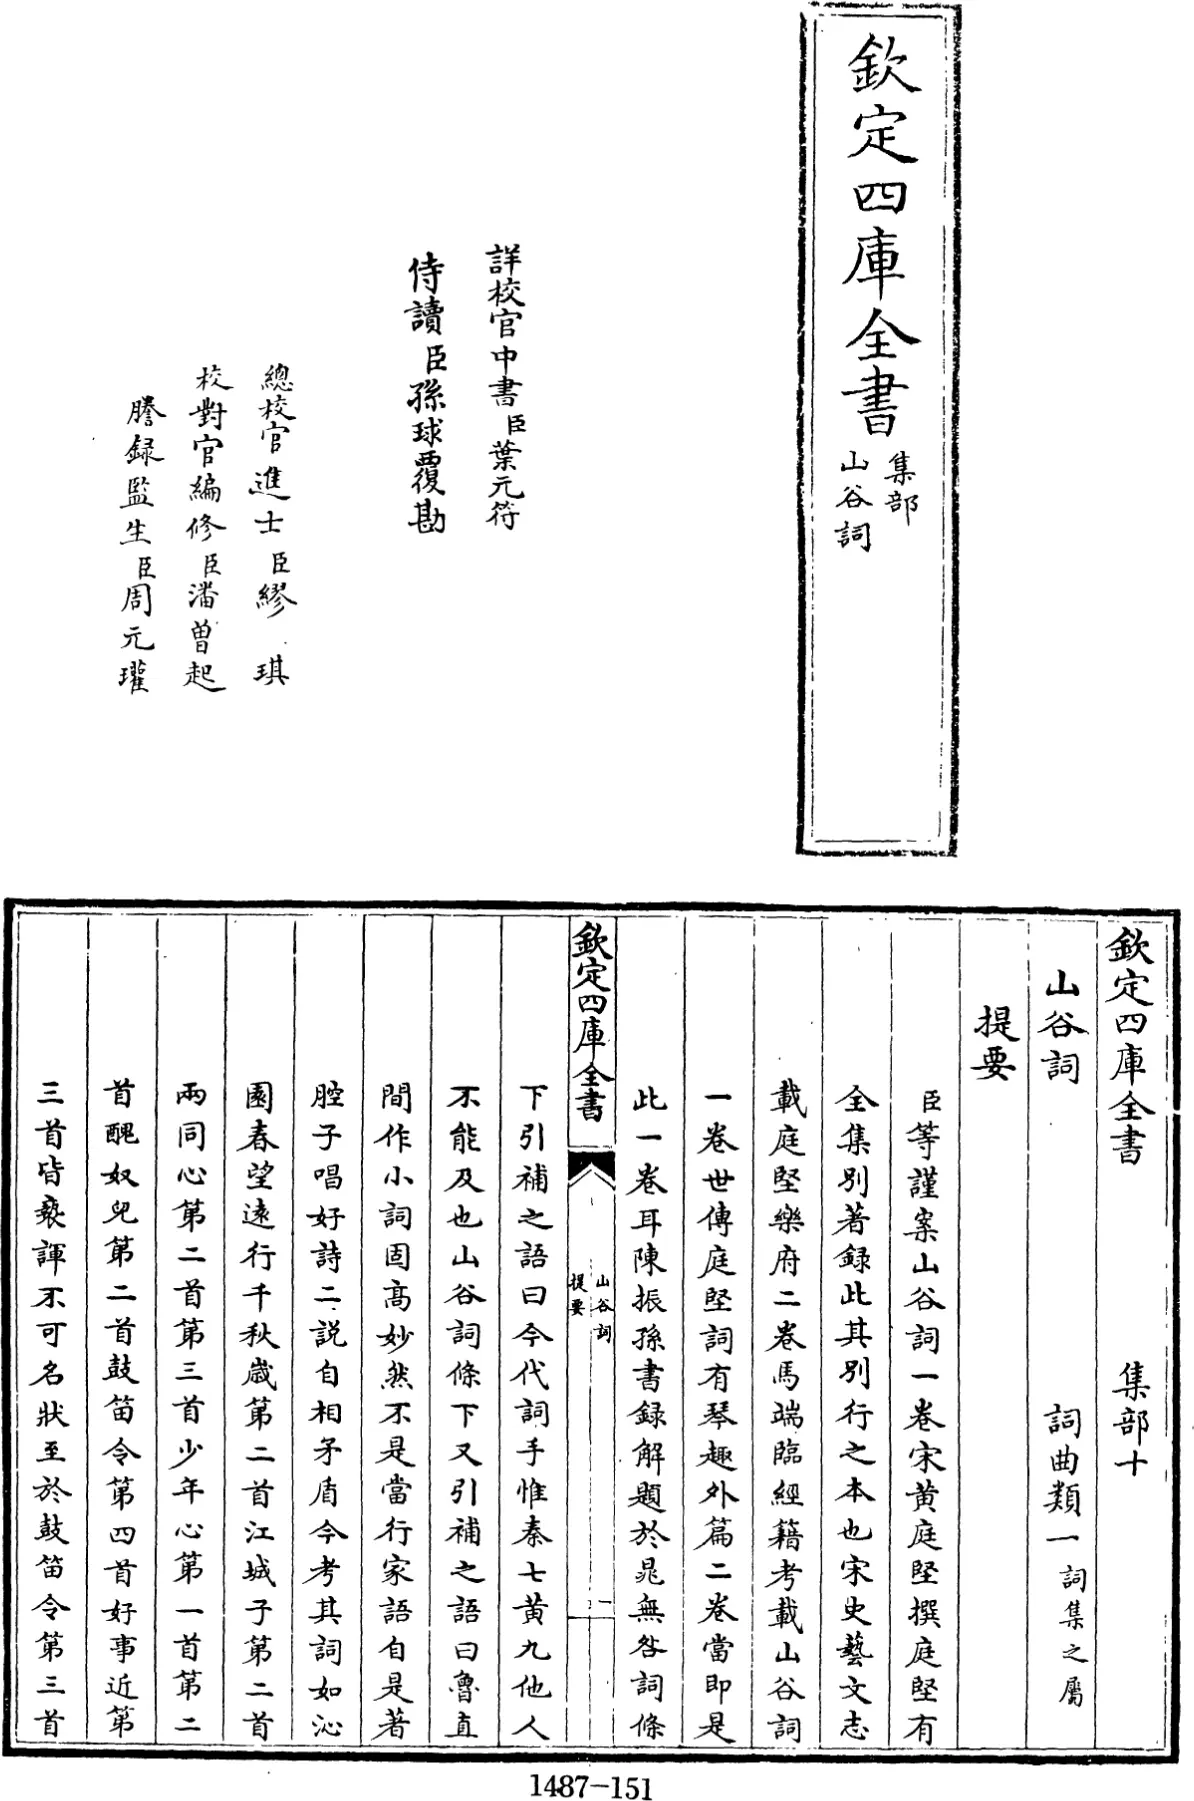 欽定四庫全書
集部
山谷詞
詳校官中書臣葉元符
侍讀臣孫球覆勘
總校官進士臣繆琪
校對官編修臣潘曾起
謄錄監生臣周元瓘
欽定四庫全書 集部十
山谷詞 詞曲類一 詞集之屬
提要
臣等謹案山谷詞一卷宋黄庭堅撰庭堅有
全集别著録此其别行之本也宋史藝文志
載庭堅樂府二卷馬端臨經籍考載山谷詞
一卷世傳庭堅詞有琴趣外篇二卷當即是
此一卷耳陳振孫書録解題於晁無咎詞條
欽定四庫全書
山谷詞
提要
一
下引補之語曰今代詞手惟秦七黄九他人
不能及也山谷詞條下又引補之語曰魯直
間作小詞固高妙然不是當行家語自是著
腔子唱好詩二説自相矛盾今考其詞如沁
園春望逺行千秋嵗第二首江城子第二首
兩同心第二首第三首少年心第一首第二
首醜奴兒第二首鼓笛令第四首好事近第
三首皆褻諢不可名狀至於鼓笛令第三首
1487-151